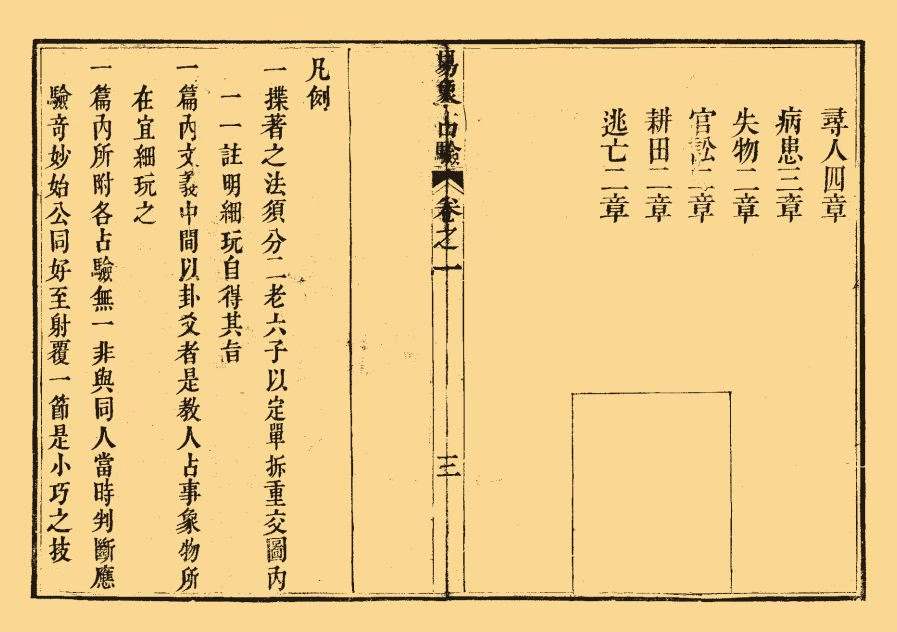 尋人四章
病患三章
失物二章
官訟二章
耕田二章
逃亡二章
易象占驗 卷之一 三
凡例
一揲蓍之法須分二老六子以定單拆重交圖內
一一註明細玩自得其旨
一篇內文義中間以卦爻者是教人占事象物所
在宜細玩之
一篇內所附各占驗無一非與同人當時判斷應
驗奇妙始公同好至射覆一節是小巧之技